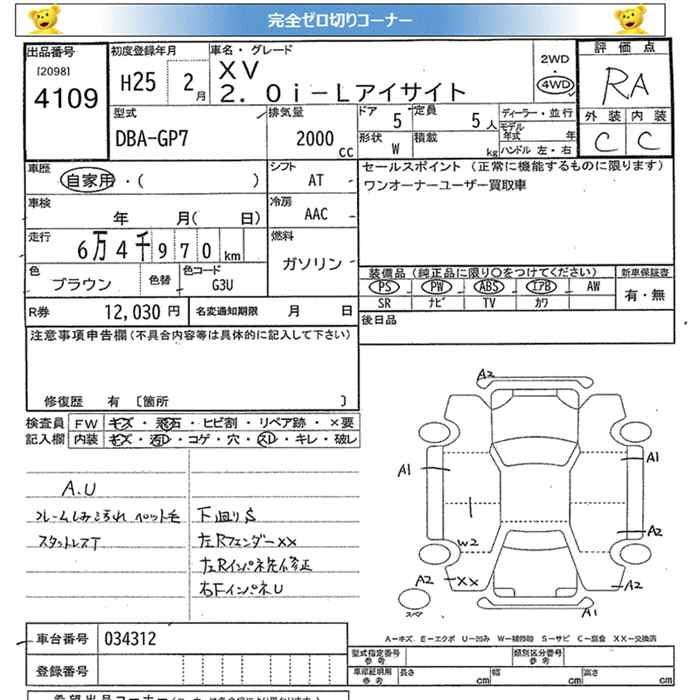 完全ゼロ切りコーナー
出品番号 初度登録年月 車名・グレード 2WD 評価点
[2098] H25 2月 XV ・ RA
4109 2.0i-Lアイサイト 4WD
型式 排気量 ドア 定員 ディーラー・並行 外装 内装
DBA-GP7 2000cc 5 5人 モデル年式 年 C C
形状 W 積載 kg ハンドル 左・右
車歴 シフト セールスポイント (正常に機能するものに限ります)
自家用・( ) AT ワンオーナーユーザー買取車
車検 冷房
年 月( 日) AAC
走行 燃料
6万4千970km ガソリン
色 色替 色コード 装備品(純正品に限り〇をつけてください) 新車保証書
ブラウン G3U PS PW ABS エアB AW 有・無
SR ナビ TV カワ
R券 12,030円 名変通知期限 月 日 後日品
注意事項申告欄(不具合内容等は具体的に記入して下さい)
修復歴 有 〔箇所 〕
検査員 FW キズ・飛石・ヒビ割・リペア跡・×要
記入欄 内装 キズ・汚レ・コゲ・穴・スレ・キレ・破レ
A.U
フレームしみこられ ペット毛 下廻りS
スタットレスT 左Rフェンダーxx
左Rインパネ先修正
右FインパネU
A2
A1 A1
W2 A2
A2 XX A2
スペア A1
A-キズ E-エクボ U-凹み W-補修跡 S-サビ C-腐食 XX-交換済
車台番号 034312 型式指定番号 参考 類別区分番号 参考
登録番号 車庫証明 参考 長さ cm 幅 cm 高さ cm